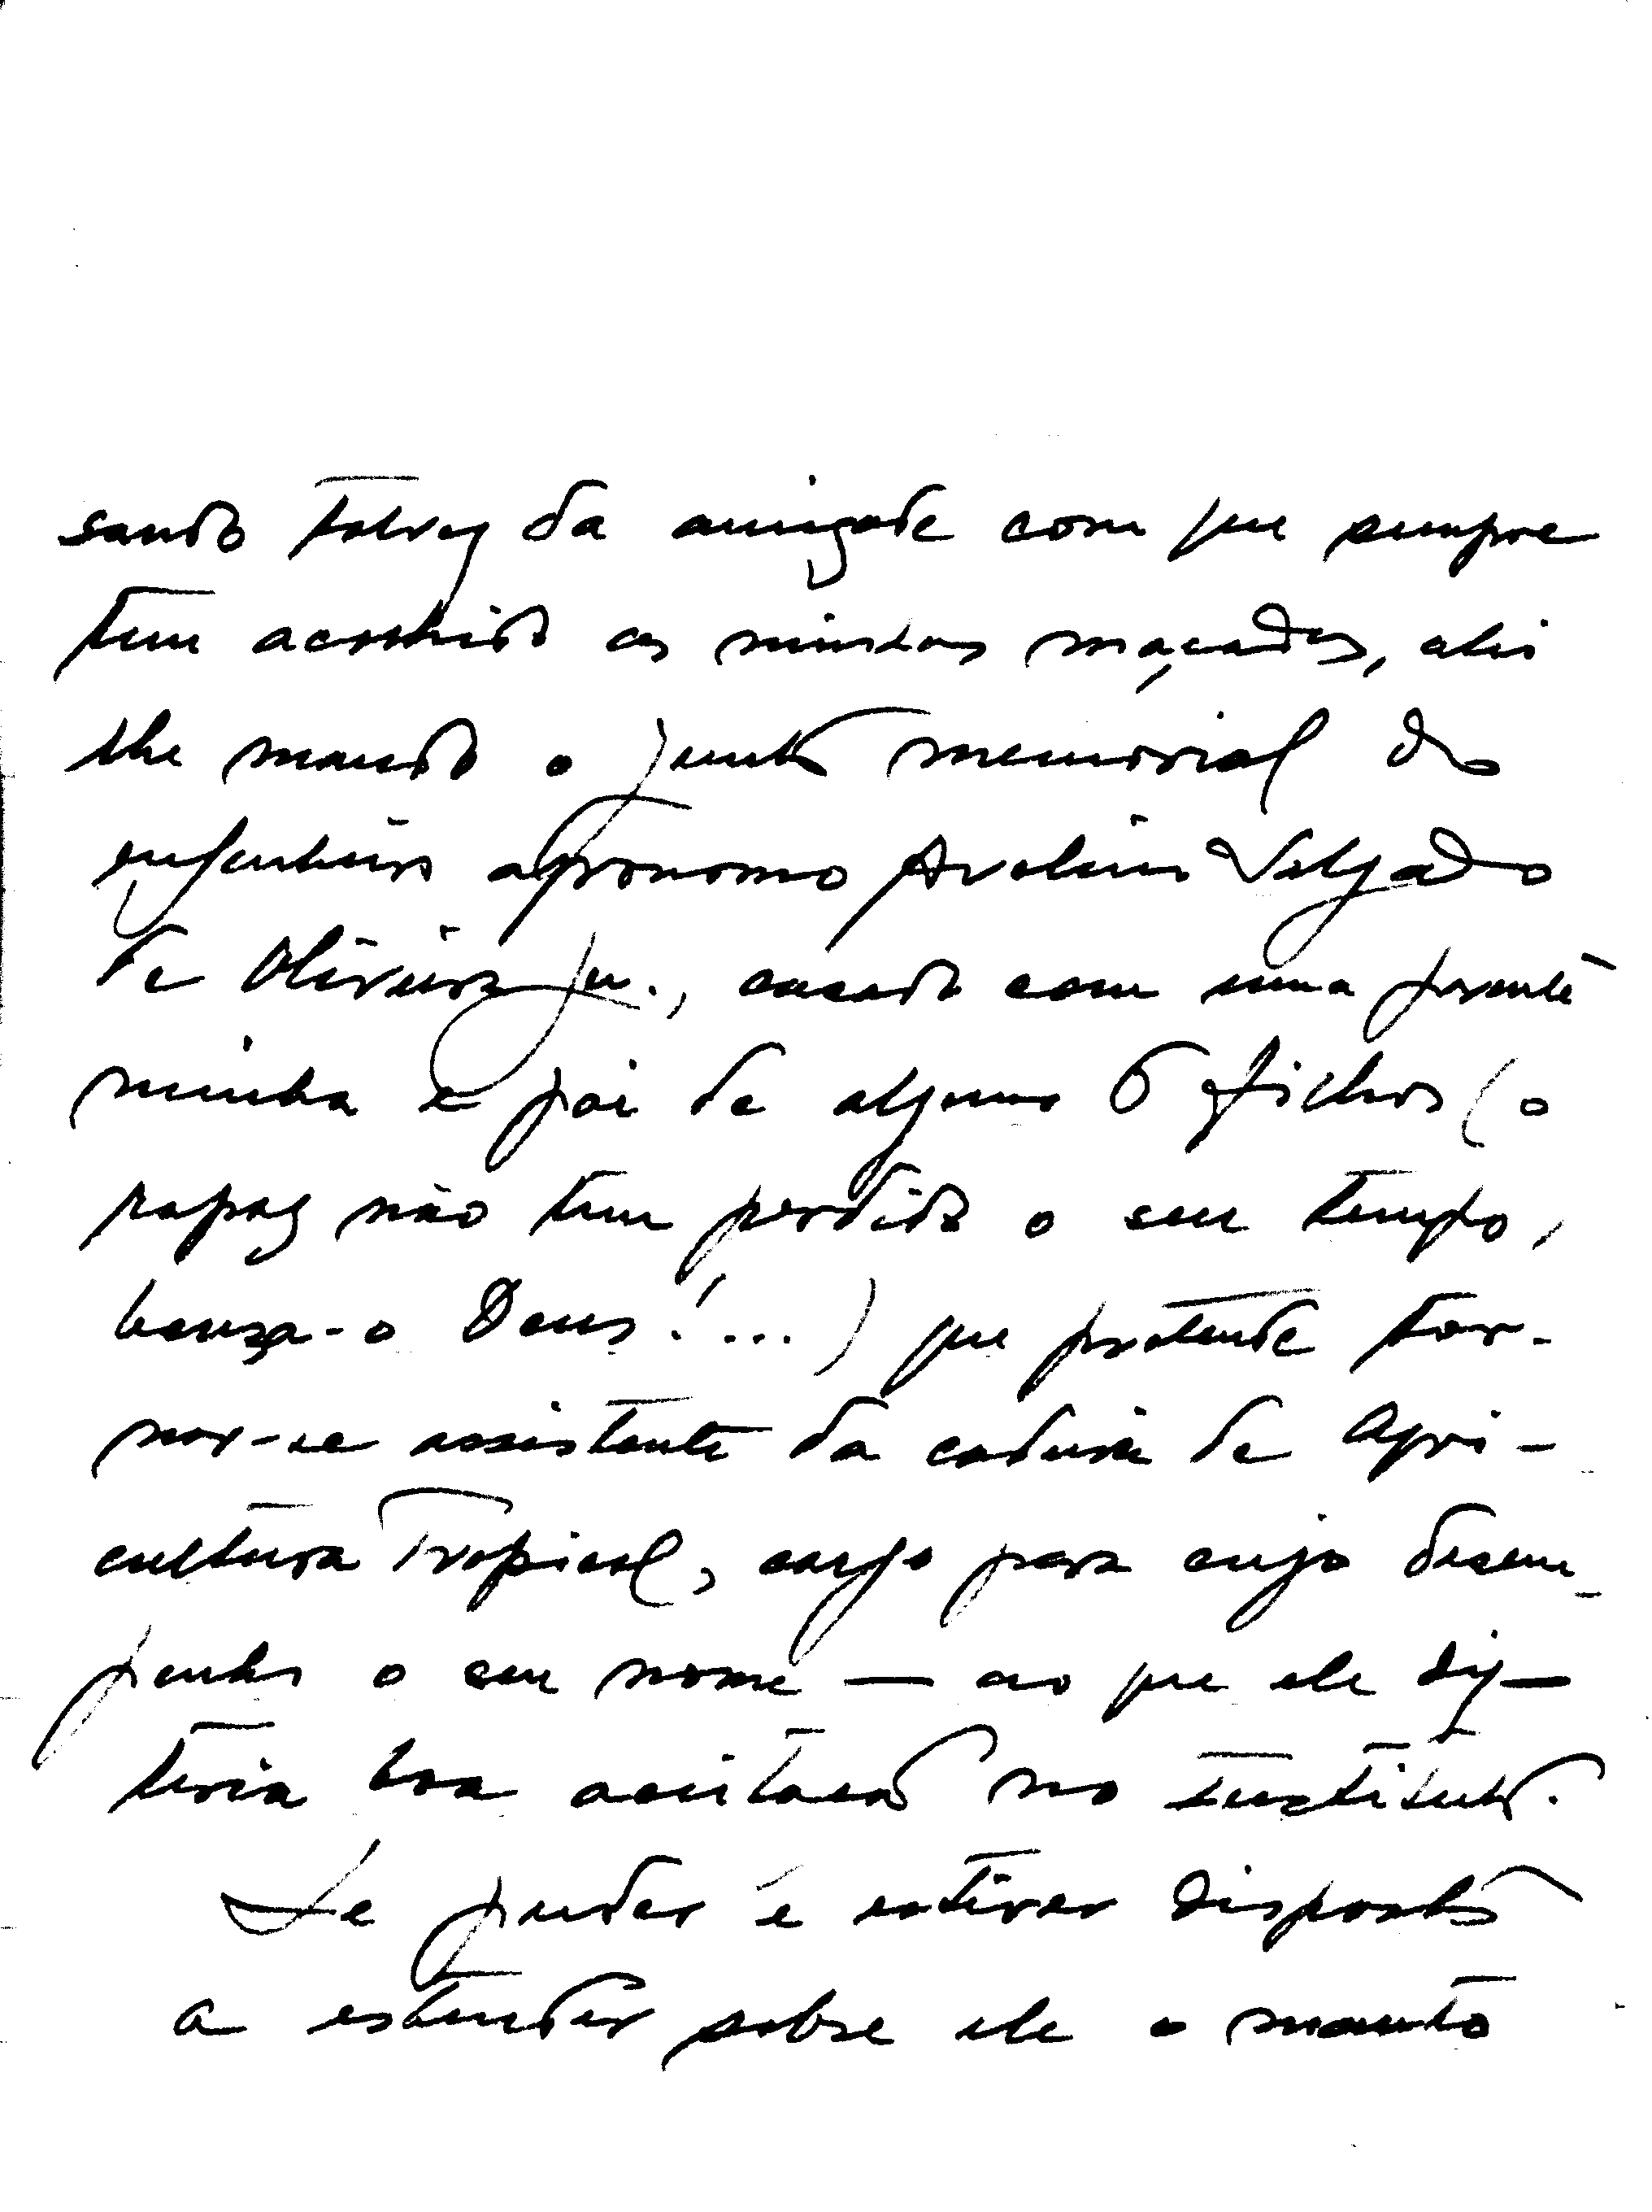 sando talvez da amizade com que sempre
tem acolhido as minhas maçadas, ahi
lhe mando o junto memorial do
engenheiro agronomo Avelino Salgado
de Oliveira Jr., casado com uma parente
minha e pai de alguns 6 filhos (o
rapaz não tem perdido o seu tempo,
benza-o Deus!...) que pretende tor-
nar-se assistente da cadeira de Agri-
cultura Tropical, cargo para cujo desem-
penho o seu nome — ao que ele diz —
teria boa aceitação no Instituto.
Se puder e estiver disposto
a estender sobre ele o manto